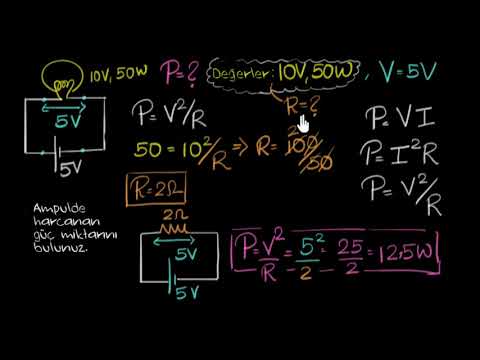 10V, 50W
P=?
Değerler: 10V, 50W, V=5V
5V
5V
R=?
P=V²/R
50=10²/R ⇒ R=100/50
2
R=2Ω
P=VI
P=I²R
P=V²/R
Ampulde
harcanan
güç miktarını
bulunuz.
2Ω
5V
5V
P=V²/R=5²/2=25/2=12,5W